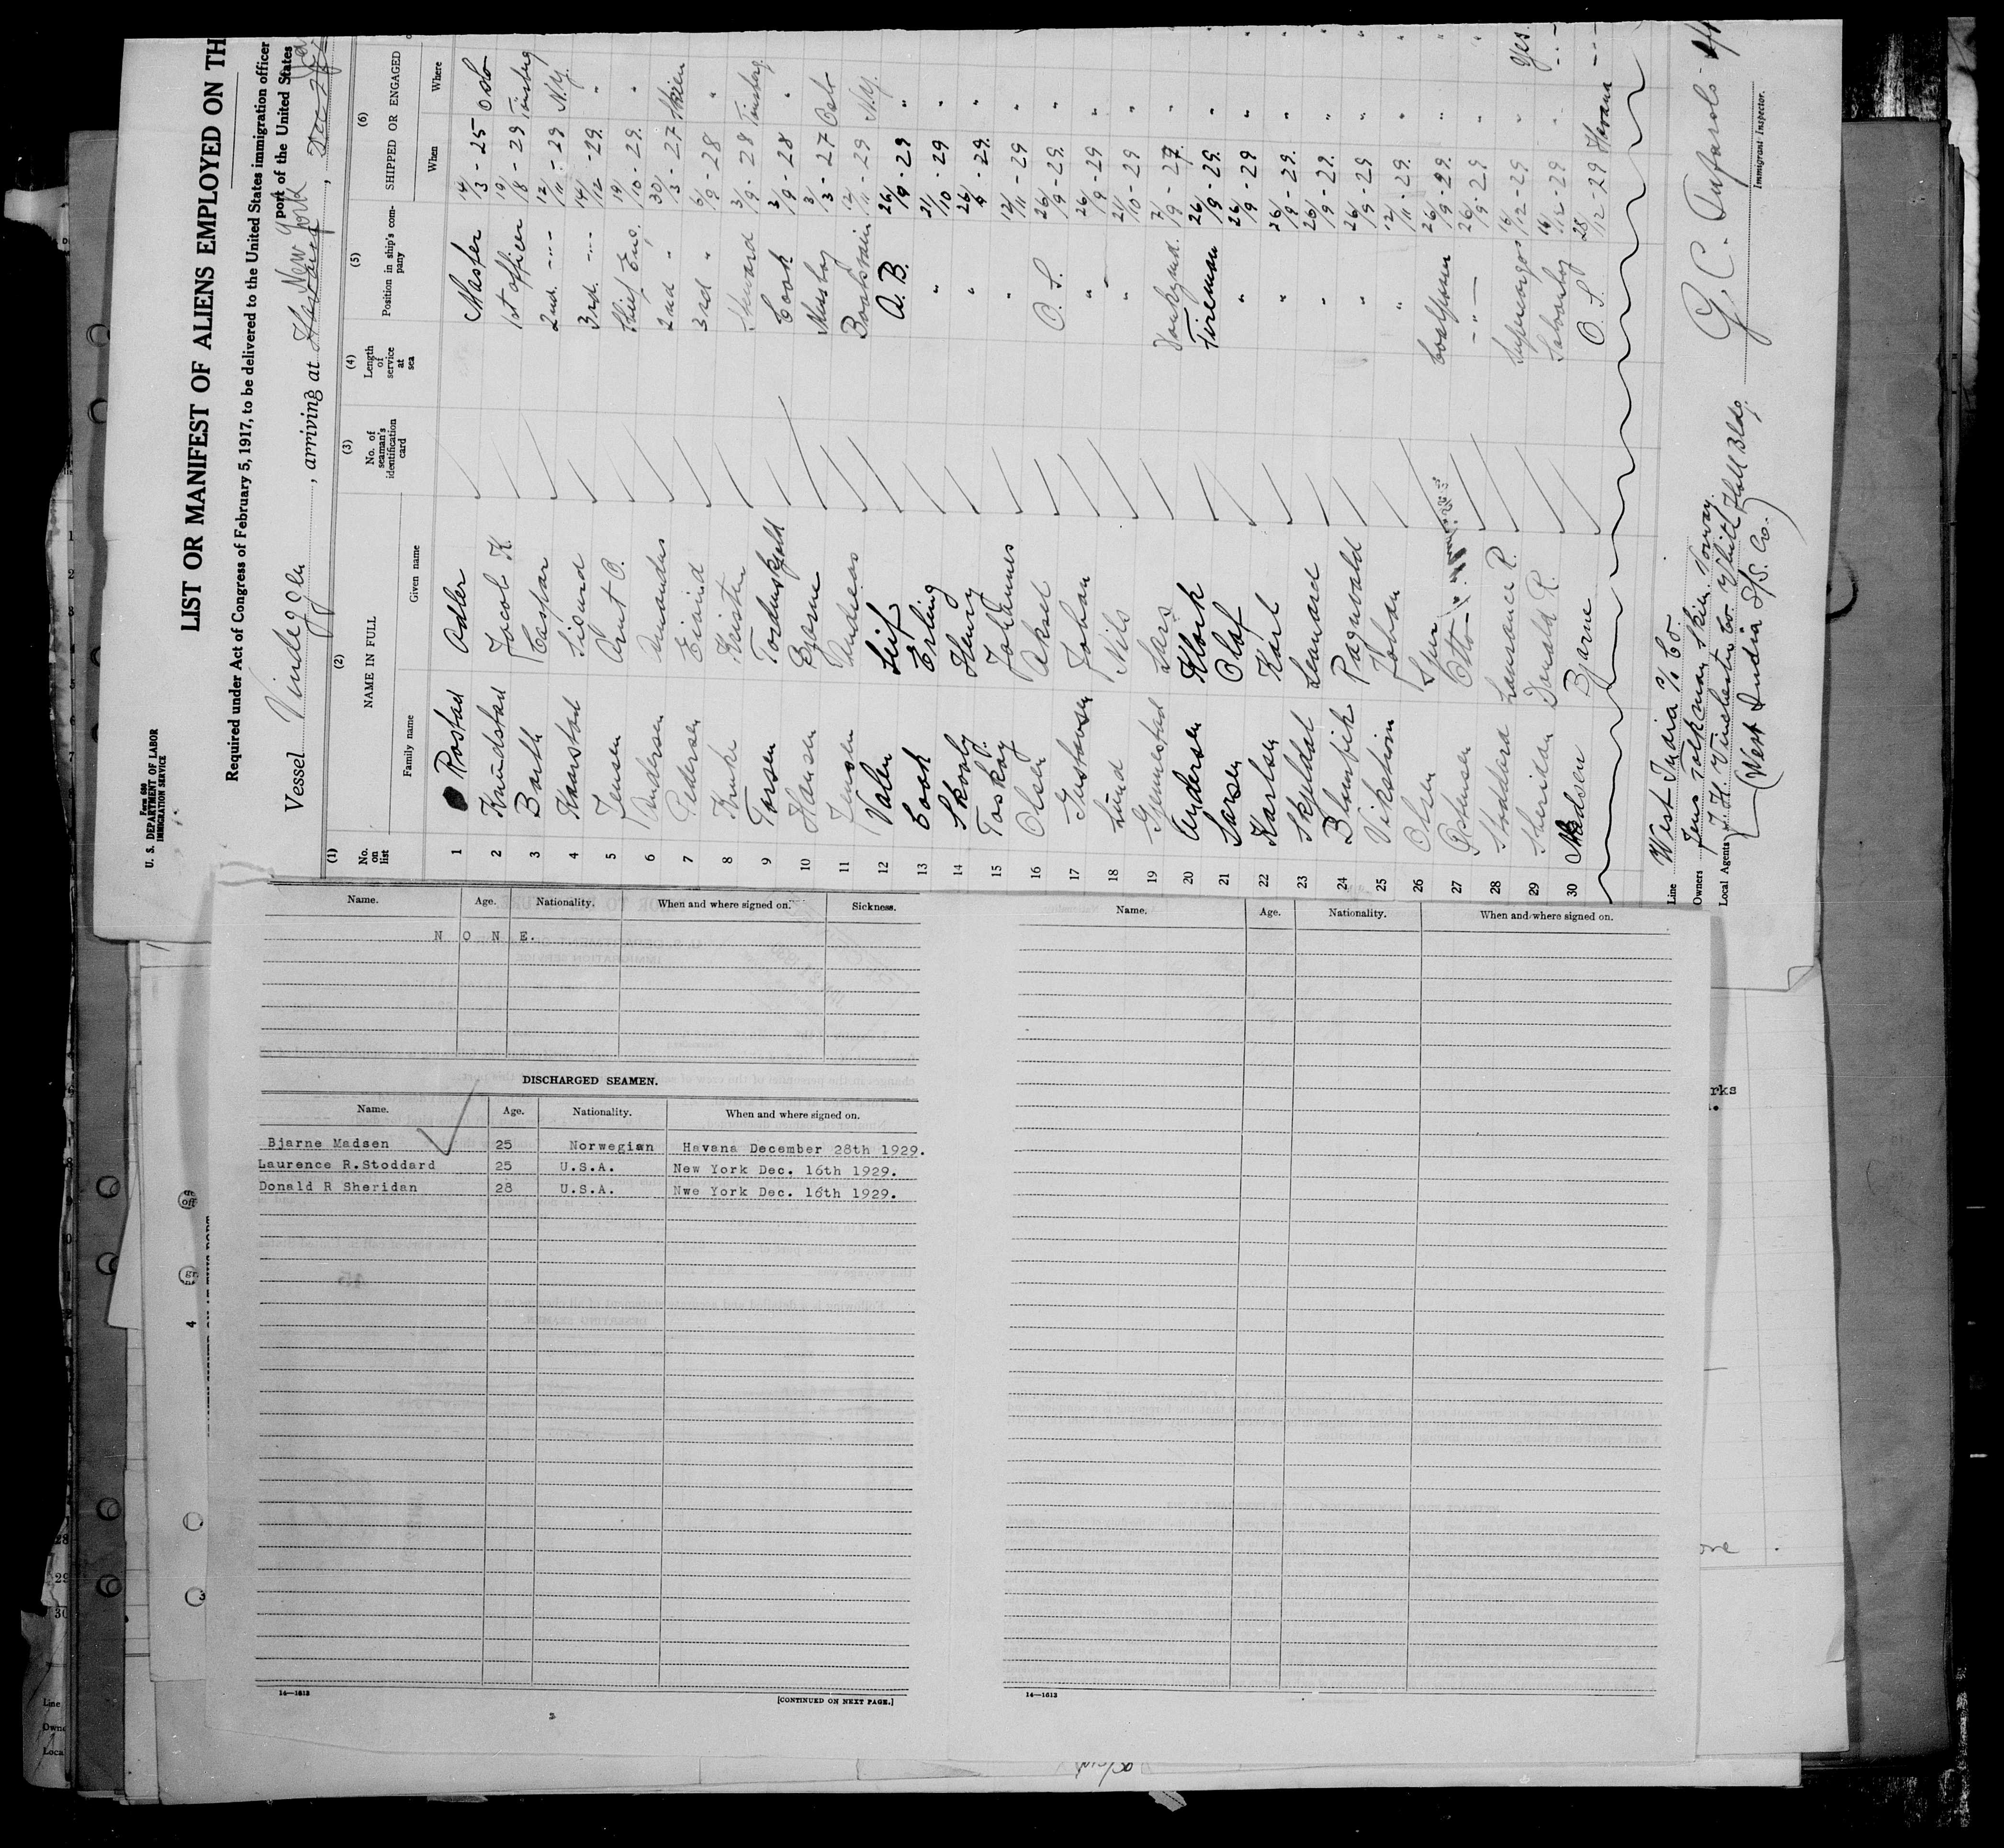 Form 680
U. S. DEPARTMENT OF LABOR
IMMIGRATION SERVICE
LIST OR MANIFEST OF ALIENS EMPLOYED ON TH
Required under Act of Congress of February 5, 1917, to be delivered to the United States immigration officer
port of the United States
Vessel Vindeggen, arriving at New York
(1) (2) (3) (4) (5) (6)
No. on list NAME IN FULL No. of seaman's identification card Length of service at sea Position in ship's company SHIPPED OR ENGAGED
Family name Given name When Where
1 Rostad Adler Master 14/3 - 25 Oslo
2 Kaundstad Jacob K. 1st officer 19/8 - 29 Tönsberg
3 Barth Caspar 2nd. -"- 12/11 - 29 N.Y.
4 Kaarstad Sigurd 3rd. -"- 14/12 - 29. "
5 Jensen Arnt O. Chief Eng. 19/10 - 29. "
6 Andersen Amandus 2nd " 30/3 - 27 Skien
7 Pedersen Eivind 3rd " 6/9 - 28 "
8 Kristen Steward 3/9 - 28 Tönsberg
9 Torsen Tordenskjold Cook 3/9 - 28 "
10 Hansen Bjarne Messboy 3/3 - 27 Oslo
11 Jensen Andreas Boatswain 12/11 - 29 N.Y.
12 Valen Leif A. B. 26/9 - 29 "
13 Cook Erling " 21/10 - 29 "
14 Skovly Henry " 26/9 - 29. "
15 Toskay Johannes " 12/11 - 29 "
16 Olsen Aksel O. S. 26/9 - 29. "
17 Gustavsen Johan " 26/9 - 29 "
18 Lund Nils " 21/10 - 29 "
19 Gjennestad Lars Donkeyml. 7/9 - 27. "
20 Andersen Fireman 26/9 - 29. "
21 Larsen Olaf " 26/9 - 29 "
22 Karlsen Karl " 26/9 - 29. "
23 Skjeldal Leonard " 26/9 - 29. "
24 Blomfish Ragnvald " 26/9 - 29 "
25 Vikstrom Johan " 12/11 - 29. "
26 Olsen Coalpasser 26/9 - 29. "
27 Otto -"- 26/9 - 29 "
28 Stoddard Laurance R. 16/12 - 29 " Yes
29 Sheridan Donald R. 16/12 - 29 "
30 Madsen Bjarne O. S. 28/12 - 29 Havana
Line West India S/S Co.
Owners Jens Skien Norway.
Local Agents J. H. Winchester Co. Whitehall Bldg.
(West India S/S. Co.)
G. C.
Immigrant Inspector.
Name. Age. Nationality. When and where signed on. Sickness.
N O N E.
DISCHARGED SEAMEN.
Name. Age. Nationality. When and where signed on.
Bjarne Madsen 25 Norwegian Havana December 28th 1929.
Laurence R.Stoddard 25 U.S.A. New York Dec. 16th 1929.
Donald R Sheridan 28 U.S.A. Nwe York Dec. 16th 1929.
14—1613
[CONTINUED ON NEXT PAGE.]
2
Name. Age. Nationality. When and where signed on.
14—1613
rks